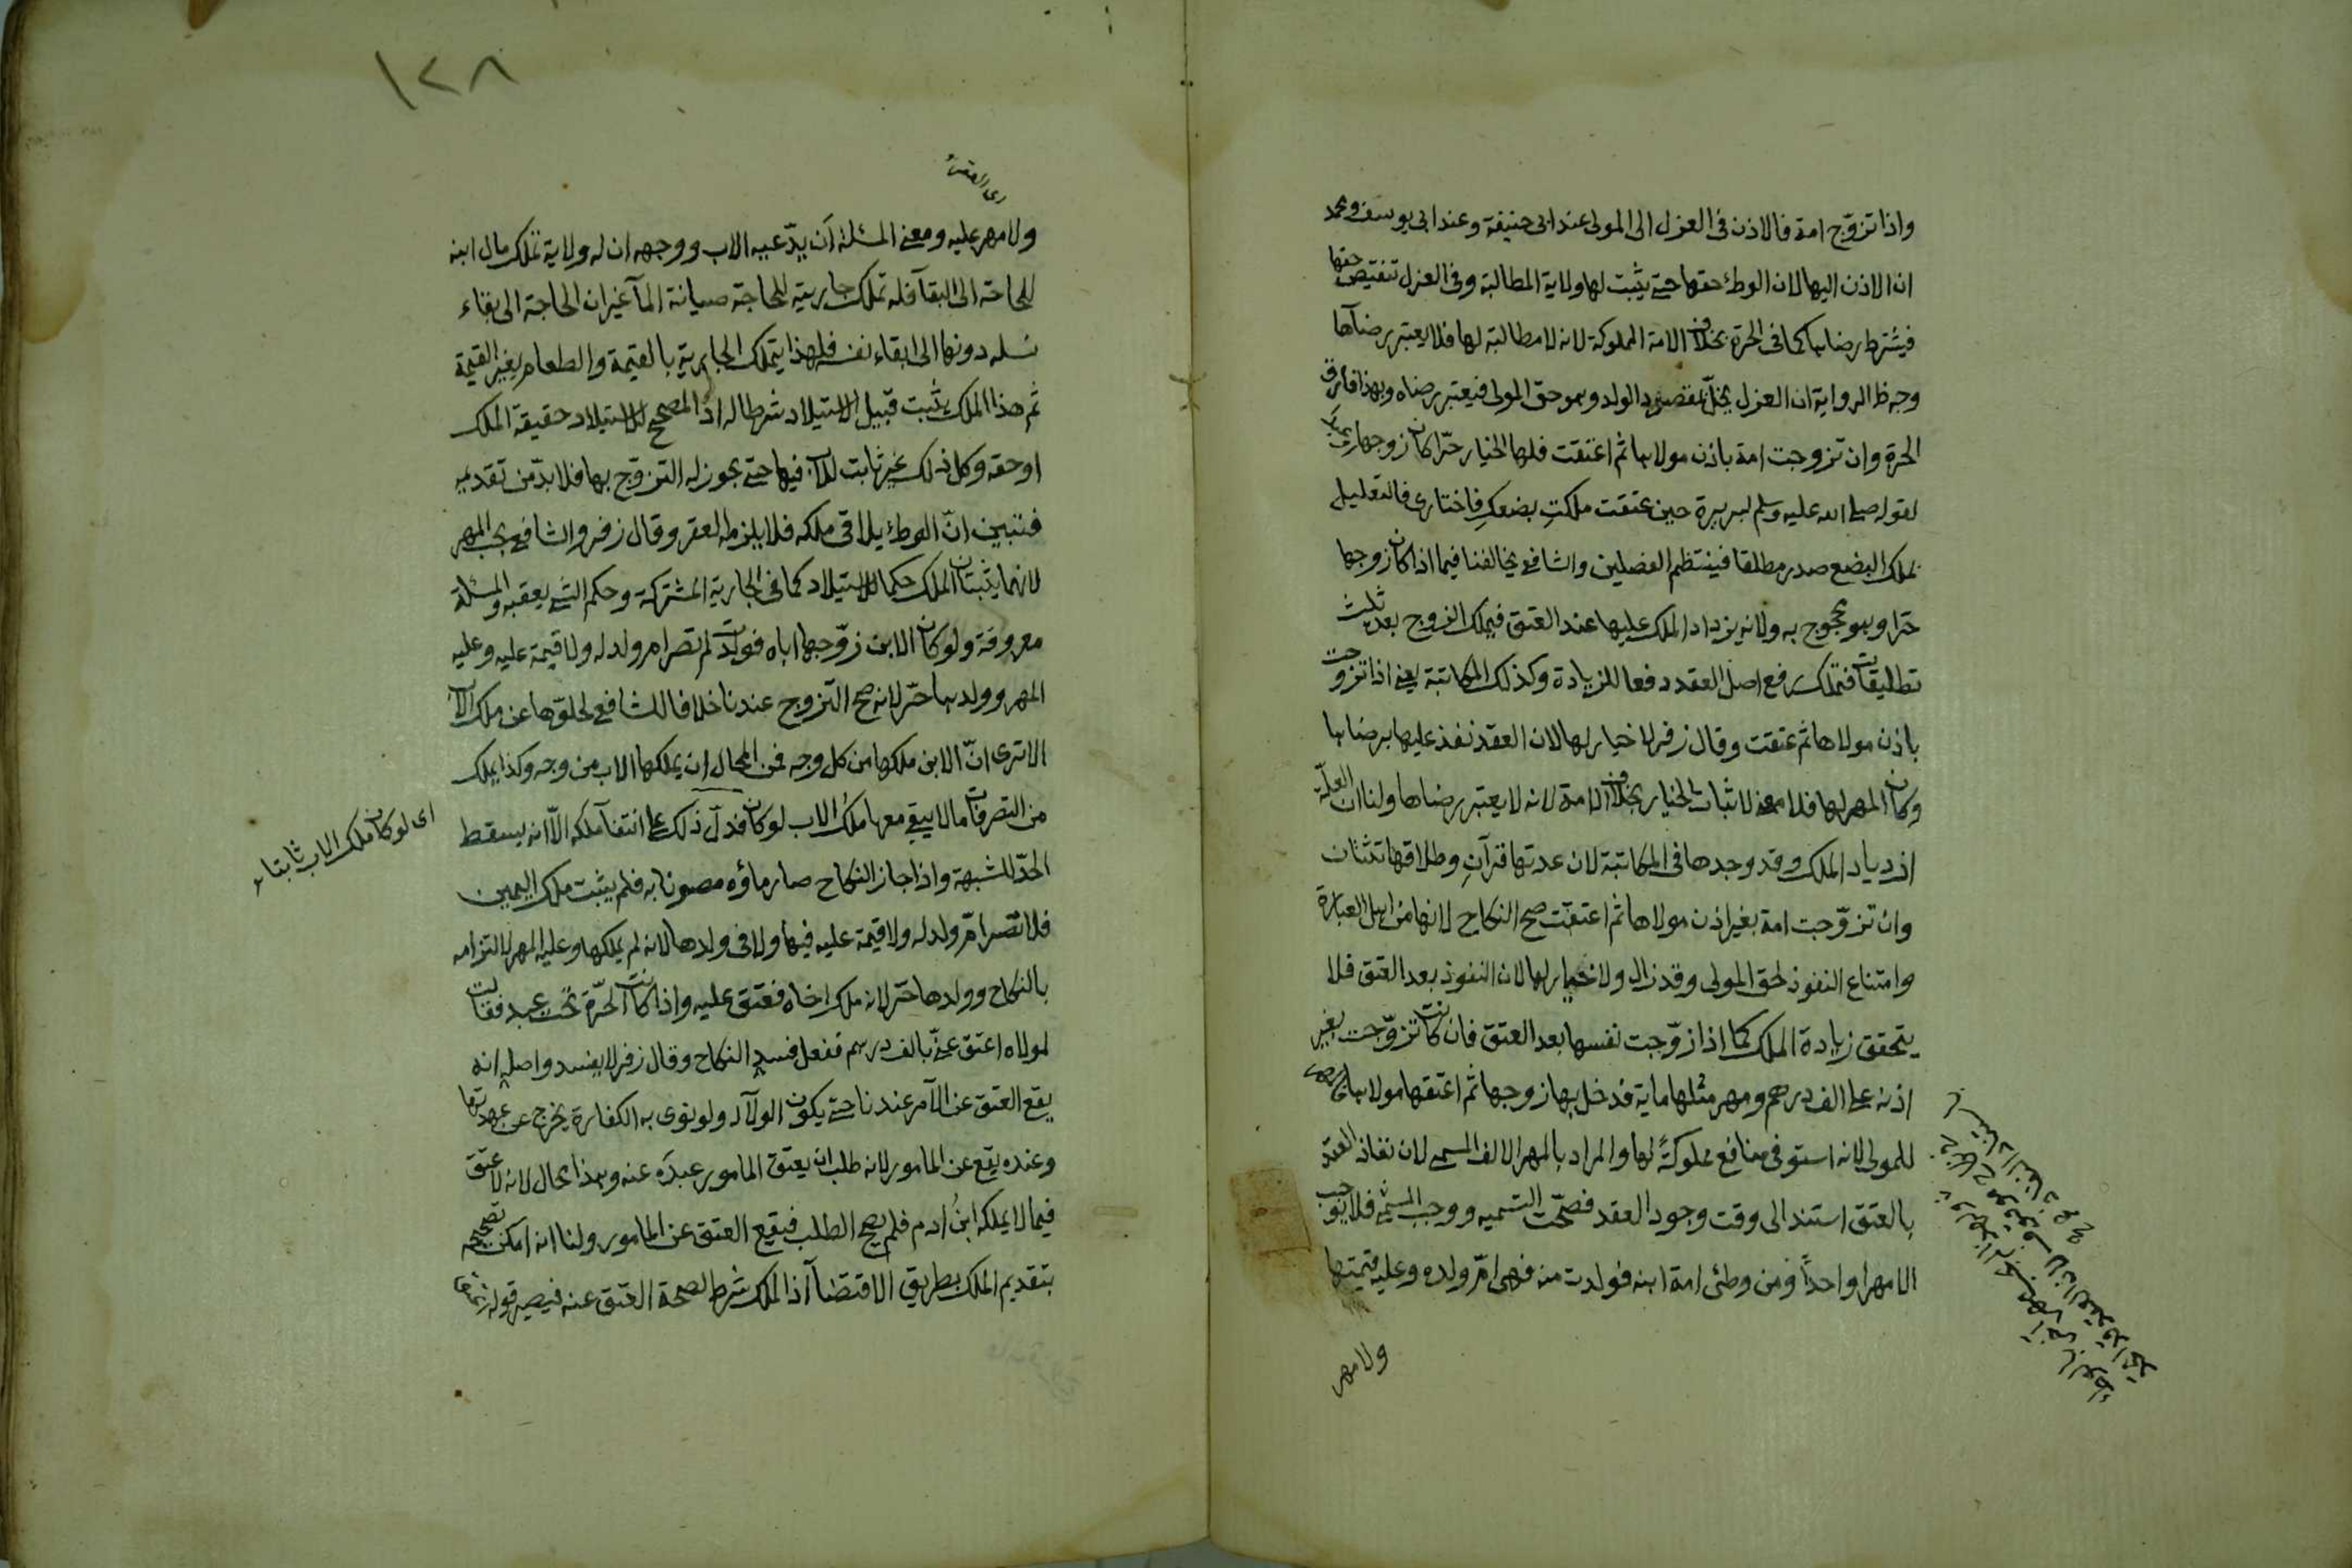 واذا تزوّج امة فالاذن فى العزل الى المولى عند ابى حنيفة وعند ابى يوسف ومحمد
ان الاذن اليها لان الوطئ حقها حتى يثبت لها ولاية المطالبة وفى العزل تنقيص حقها
فيشترط رضاها كما فى الحرة بخلاف الامة المملوكة لانه لا مطالبة لها فلا يعتبر رضآها
وجه ظ الرواية ان العزل يخلّ بمقصود الولد وهو حق المولى فيعتبر رضاه وبهذا فارق
الحرة وان تزوجت امة باذن مولاها ثم اعتقت فلها الخيار حرّا كان زوجها
لقوله صلى الله عليه وسلم لبريرة حين عتقت ملكتِ بضعكِ فاختارى فالتعليل
بملك البضع صدر مطلقا فينتظم الفصلين والشافعى يخالفنا فيما اذا كان زوجها
حرّا وهو محجوج به ولانه يزداد الملك عليها عند العتق فيملك الزوج بعده ثلث
تطليقات فتملك رفع اصل العقد دفعا للزيادة وكذلك المكاتبة يعنى اذا تزوجت
باذن مولاها ثم عتقت وقال زفر لا خيار لها لان العقد نفذ عليها برضاها
وكان المهر لها فلا معنى لاثبات الخيار بخلاف الامة لانه لا يعتبر رضاها ولنا ان العلّة
ازدياد الملك وقد وجدها فى المكاتبة لان عدتها قرآنِ وطلاقها تثنتان
وان تزوّجت امة بغير اذن مولاها ثم اعتقت صح النكاح لانها من اهل العبارة
وامتناع النفوذ لحق المولى وقد زال ولا خيار لها لان النفوذ بعد العتق فلا
يتحقق زيادة الملك كما اذا زوّجت نفسها بعد العتق فان كانت تزوّجت بغير
اذنه على الف درهم ومهر مثلها ماية فدخل بها زوجها ثم اعتقها مولاها فالمهر
للمولى لانه استوفى منافع مملوكةً لها والمراد بالمهر الالف المسمى لان نفاذ العقد
بالعتق استند الى وقت وجود العقد فصحّت التسميه ووجب المسمى فلا يوجب
الا مهرا واحداً ومن وطئى امة ابنه فولدت منه فهى امّ ولده وعليه قيمتها
ولا مهر
١٢٨
اى العقر
ولا مهر عليه ومعنى المسئلة اَن يدّعيه الاب ووجهه ان له ولاية تملك مال ابنه
للحاجة الى البقآ فله تملك جاريته للحاجة صيانة المآ غير ان الحاجة الى بقاء
نسله دونها الى ابقاء نفسه فلهذا يتملك الجارية بالقيمة والطعام بغير القيمة
ثم هذا الملك يثبت قبيل الاستيلاد شرطا له اذ المصحح للاستيلاد حقيقة الملك
او حقه وكل ذلك غير ثابت للاب فيها حتى يجوز له التزوّج بها فلا بدّ من تقديمه
فتبين انّ الوطئ يلاقى ملكه فلا يلزمه العقر وقال زفر والشافعى يجب المهر
لانهما يثبتان الملك حكما للاستيلاد كما فى الجارية المشتركة وحكم الشئ يعقبه والمسئلة
معروفة ولو كان الابن زوّجها اباه فولدت لم تصر ام ولد له ولا قيمة عليه وعليه
المهر وولدها حرّ لانه صح التزوج عندنا خلافا للشافعى لخلوّها عن ملك الاب
الا ترى انّ الابن ملكها من كل وجه فمن المحال ان يملكها الاب من وجه وكذا يملك
من التصرفات ما لا يبقى معها ملك الاب لو كان فدلّ ذلك على انتفآ ملكه الّا انه يسقط
اى لو كان ملك الاب ثابتا
الحدّ للشبهة واذا جاز النكاح صار ماؤه مصونا به فلم يثبت ملك اليمين
فلا تصر امّ ولد له ولا قيمة عليه فيها ولا فى ولدها لانه لم يملكها وعليه المهر لالتزامه
بالنكاح وولدها حرّ لانه ملك اخاه فعتق عليه واذا كانت الحرّة تحت عبد فقالت
لمولاه اعتق عنّى بالف درهم ففعل فسد النكاح وقال زفر لا يفسد واصله انه
يقع العتق عن الآمر عندنا حتى يكون الولآ له ولو نوى به الكفارة يخرج عن عهدتها
وعنده يقع عن المامور لانه طلب ان يعتق المامور عبدَه عنه وهذا محال لانه لا عتق
فيما لا يملكه ابنُ ادم فلم يصح الطلب فيقع العتق عن المامور ولنا انه امكن تصحيحه
بتقديم الملك بطريق الاقتضآ اذ الملك شرط لصحة العتق عنه فيصير قوله